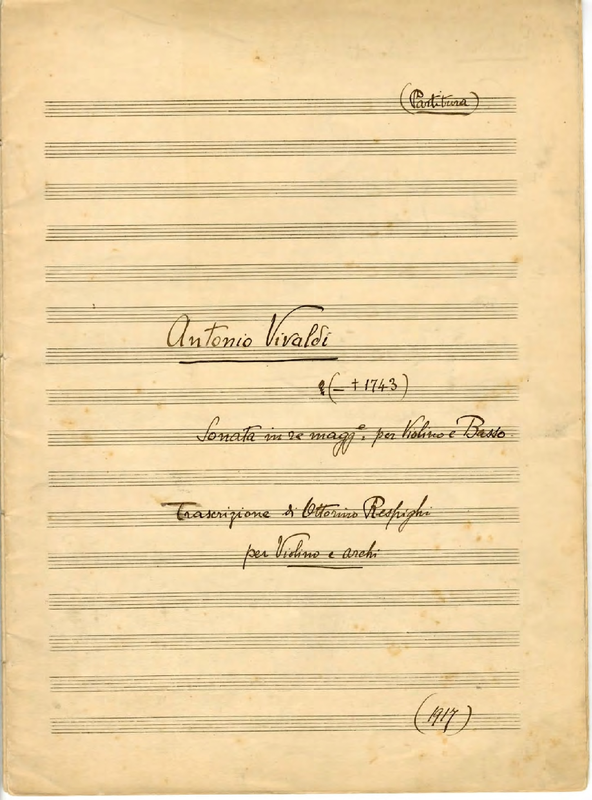 (Partitura)
Antonio Vivaldi
(– † 1743)
Sonata in re magg.e per Violino e Basso
Trascrizione di Ottorino Respighi
per Violino e archi
(1917)